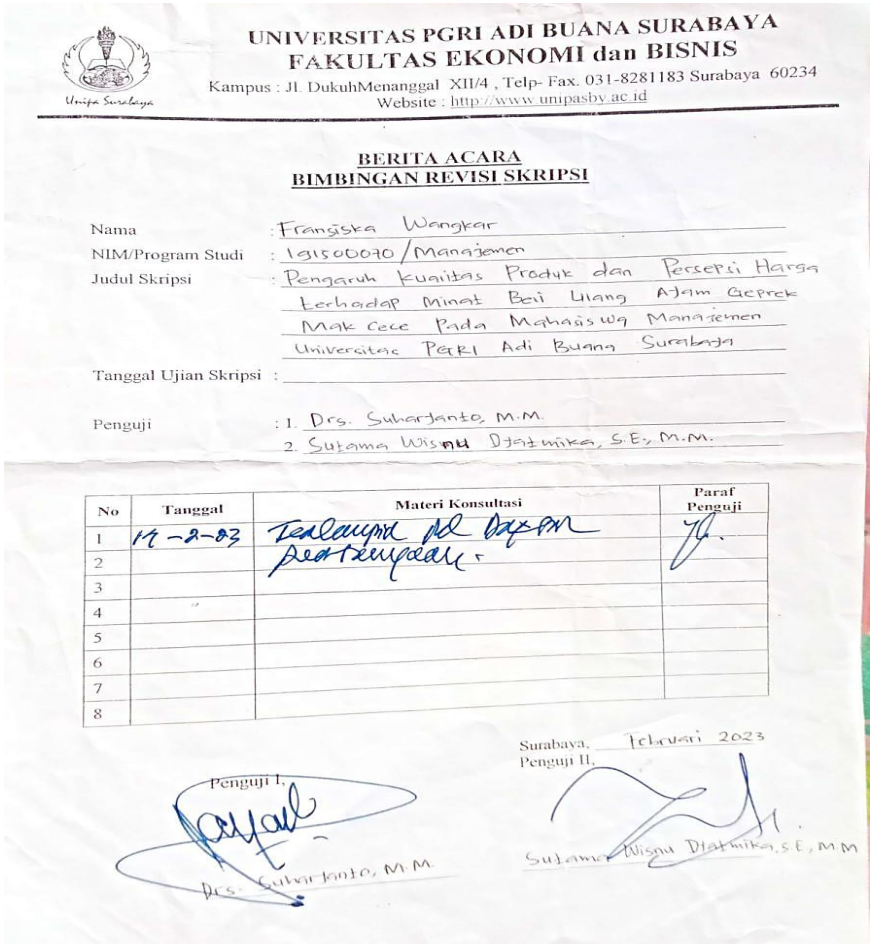 UNIVERSITAS PGRI ADI BUANA SURABAYA
FAKULTAS EKONOMI dan BISNIS
Kampus : Jl. DukuhMenanggal XII/4 , Telp- Fax. 031-8281183 Surabaya 60234
Website : http://www.unipasby.ac.id
Unipa Surabaya
BERITA ACARA
BIMBINGAN REVISI SKRIPSI
Nama : Fransiska Wangkar
NIM/Program Studi : 191500070/Manajemen
Judul Skripsi : Pengaruh Kualitas Produk dan Persepsi Harga
terhadap Minat Beli Ulang Ayam Geprek
Mak Cece Pada Mahasiswa Manajemen
Universitas PGRI Adi Buana Surabaya
Tanggal Ujian Skripsi :
Penguji : 1. Drs. Suharjanto, M.M.
2. Sutama Wisnu Djatmika, S.E., M.M.
No Tanggal Materi Konsultasi Paraf Penguji
1
2
3
4
5
6
7
8
Surabaya, Februari 2023
Penguji I, Penguji II,
Drs. Suharjanto, M.M. Sutama Wisnu Djatmika, S.E, M.M